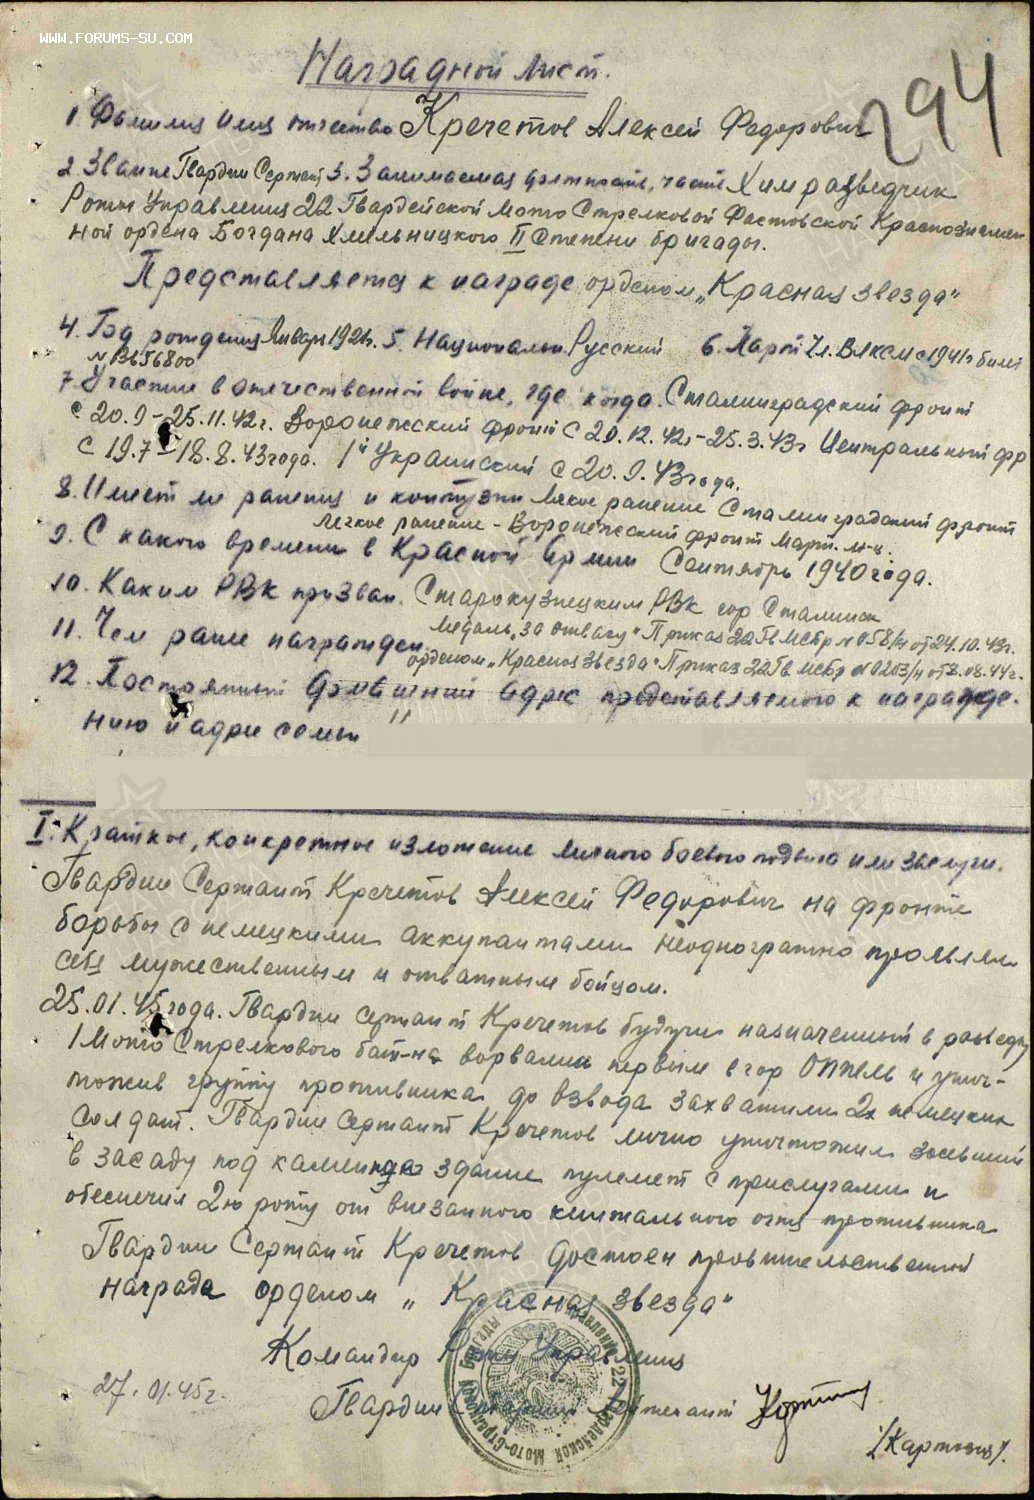 WWW.FORUMS-SU.COM
294
Наградной лист.
1. Фамилия имя отчество Кречетов Алексей Федорович
2. Звание Гвардии Сержант 3. Занимаемая должность, часть Химразведчик
Роты Управления 22 Гвардейской Мото Стрелковой Фастовской Краснознамен
ной ордена Богдана Хмельницкого II Степени бригады.
Представляется к награде орденом „Красная звезда"
4. Год рождения Январь 1921г. 5. Национальн. Русский 6. Парт. Чл. ВЛКСМ с 1941г билет
7. Участие в отечественной войне, где когда. Сталинградский фронт
с 20.9-25.11.42г. Воронежский фронт с 20.12.42г.-25.3.43г Центральный фр
с 19.7-18.8.43года. 1й Украинский с 20.9.43года.
8. Имеет ли ранения и контузии Легкое ранение Сталинградский фронт
легкое ранение - Воронежский фронт Март. м-ц.
9. С какого времени в Красной Армии Сентябрь 1940года.
10. Каким РВК призван. Старокузнецким РВК гор Сталинск
11. Чем ранее награжден Медаль „За отвагу" Приказ 22Гв МСбр №058/н от 24.10.43г.
орденом „Красная звезда" Приказ 22Гв. МСбр №0203/н от 8.08.44г.
12. Постоянный домашний адрес представляемого к награжде-
нию и адрес семьи
I. Краткое, конкретное изложение личного боевого подвига или заслуги.
Гвардии Сержант Кречетов Алексей Федорович на фронте
борьбы с немецкими аккупантами неоднократно проявлял
себя мужественным и отважным бойцом.
25.01.45года. Гвардии сержант Кречетов будучи назначенный в разведку
1 Мото Стрелкового бат-на ворвались первым в гор ОППЕЛЬ и унич-
тожив группу противника до взвода захватили 2х немецких
солдат. Гвардии Сержант Кречетов лично уничтожил засевший
в засаду под каменное здание пулемет с прислугами и
обеспечил 2ю роту от внезапного кинжального огня противника
Гвардии Сержант Кречетов достоен правительственной
награда орденом „Красная звезда"
Командир Роты Управления
27.01.45г.
Гвардии Старший Лейтенант